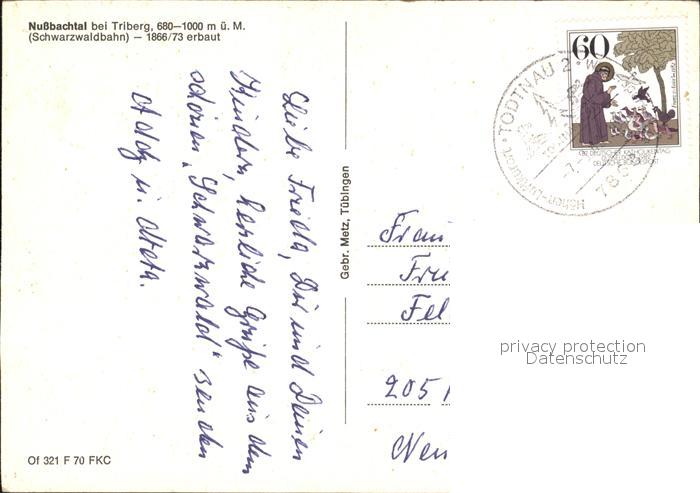 Nußbachtal bei Triberg, 680—1000 m ü. M.
(Schwarzwaldbahn) — 1866/73 erbaut
Liebe Frieda, Dir und Deinen
Kindern, herzliche Grüße aus dem
schönen „Schwarzwald" senden
Addy u. Meta.
Gebr. Metz, Tübingen
60
TODTNAU 2
Frau
Fel
205
privacy protection
Datenschutz
Of 321 F 70 FKC